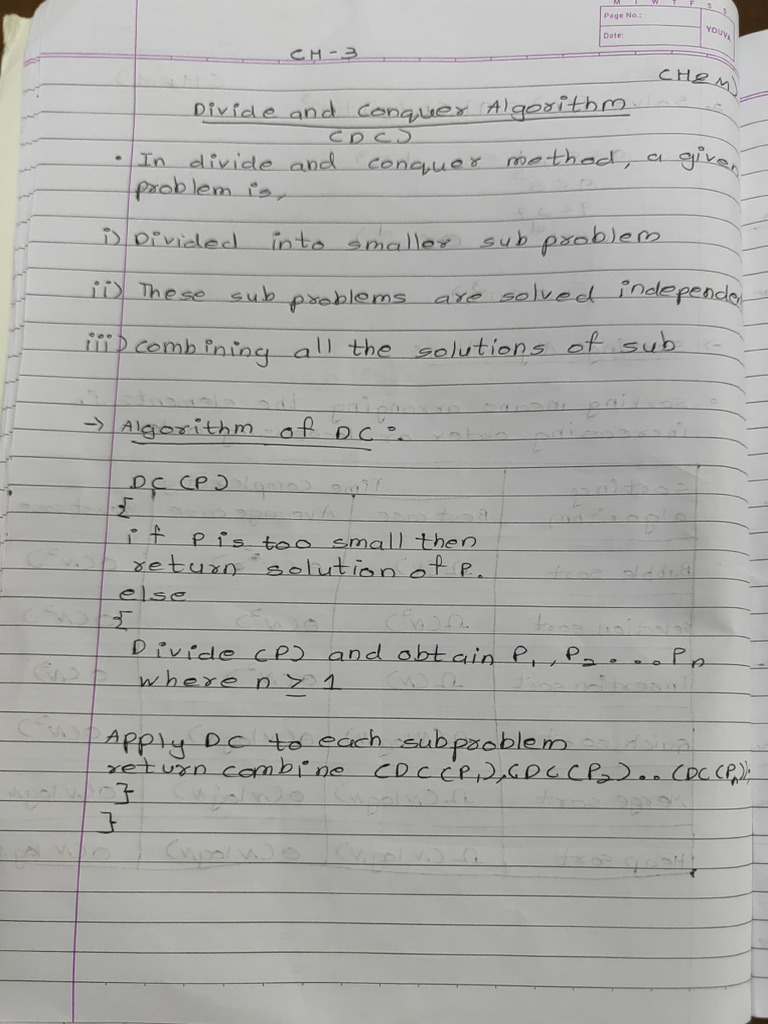 M T W T F S S
Page No.:
Date:
YOUVA
CH-3
Divide and Conquer Algorithm
(DC)
• In divide and conquer method, a given
problem is,
i) Divided into smaller sub problem
ii) These sub problems are solved independe
iii) combining all the solutions of sub
→ Algorithm of DC:.
DC (P)
{
if P is too small then
return solution of P.
else
{
Divide (P) and obtain P1, P2 .... Pn
where n ≥ 1
Apply DC to each subproblem
return combine (DC(P1), (DC(P2) .. (DC(Pn);
}
}